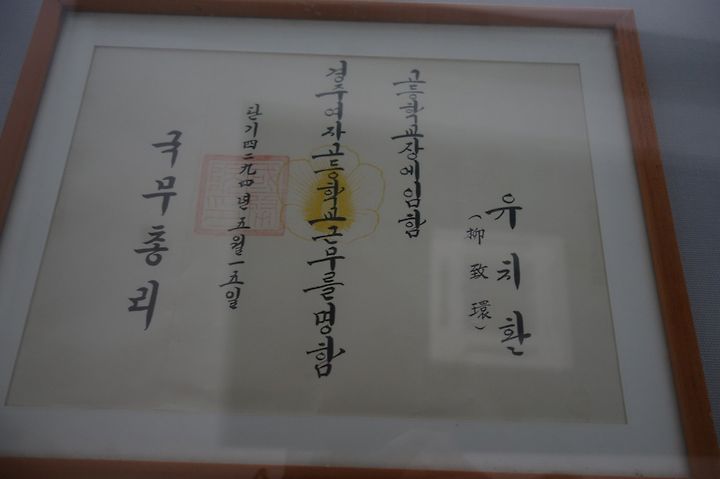 유치환
(柳致環)
고등학교장에 임함
경주여자고등학교 근무를 명함
단기四二九四년五월一五일
국무총리